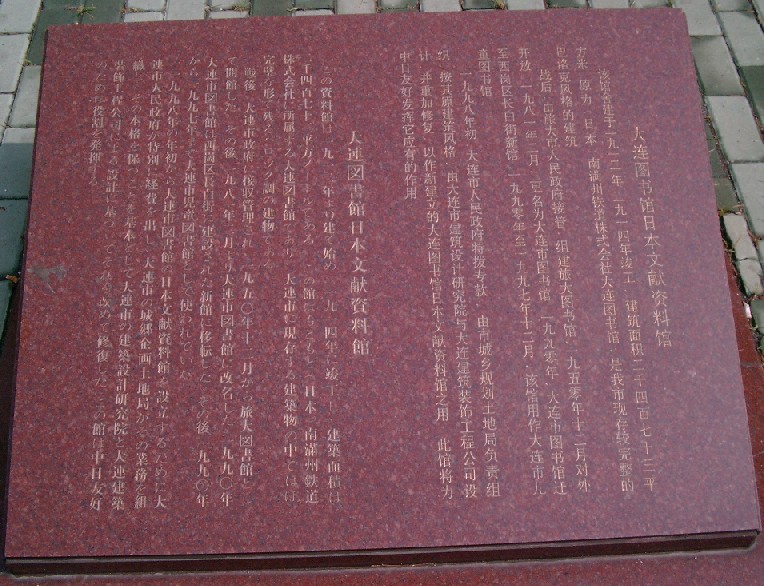 大连图书馆日本文献资料馆
该馆始建于一九一二年 一九一四年竣工 建筑面积二千四百七十三平
方米 原为 日本 南满州铁道株式会社大连图书馆 是我市现存较完整的
巴洛克风格的建筑
战后 由旅大市人民政府接管 组建旅大图书馆 一九五零年十二月对外
开放 一九八一年二月 更名为大连市图书馆 一九九零年 大连市图书馆迁
至西岗区长白街新馆 一九九零年至一九九七年十二月 该馆用作大连市儿
童图书馆
一九九八年初 大连市人民政府特拨专款 由市城乡规划土地局负责组
织 按其原建筑风格 由大连市建筑设计研究院与大连建筑装饰工程公司设
计 并重加修复 以作新建立的大连图书馆日本文献资料馆之用 此馆将为
中日友好发挥它应有的作用
大連図書館日本文献資料館
この資料館は一九一二年より建て始め 一九一四年に竣工し 建築面積は
二千四百七十三平方メートルである この館はもともと日本 南満州鉄道
株式会社に所属する大連図書館であり 大連市に現存する建築物の中でほぼ
完璧な形で残るバロック調の建物である
戦後 大連市政府に接収管理され 一九五〇年十二月から旅大図書館とし
て開館した その後 一九八一年二月より大連市図書館と改名した 一九九〇年
大連市図書館は西崗区長白街に建設された新館に移転した その後 一九九〇年
から一九九七年まで大連市児童図書館として使われていた
一九九八年の年初から大連市図書館の日本文献資料館を設立するために大
連市人民政府が特別に経費を出し 大連市の城郷企画土地局がその業務を組
織し その本格を保つことを基本として大連市の建築設計研究院と大連建築
装飾工程公司による設計に基づいてそれを改めて修復した この館は中日友好
のための役割を発揮する